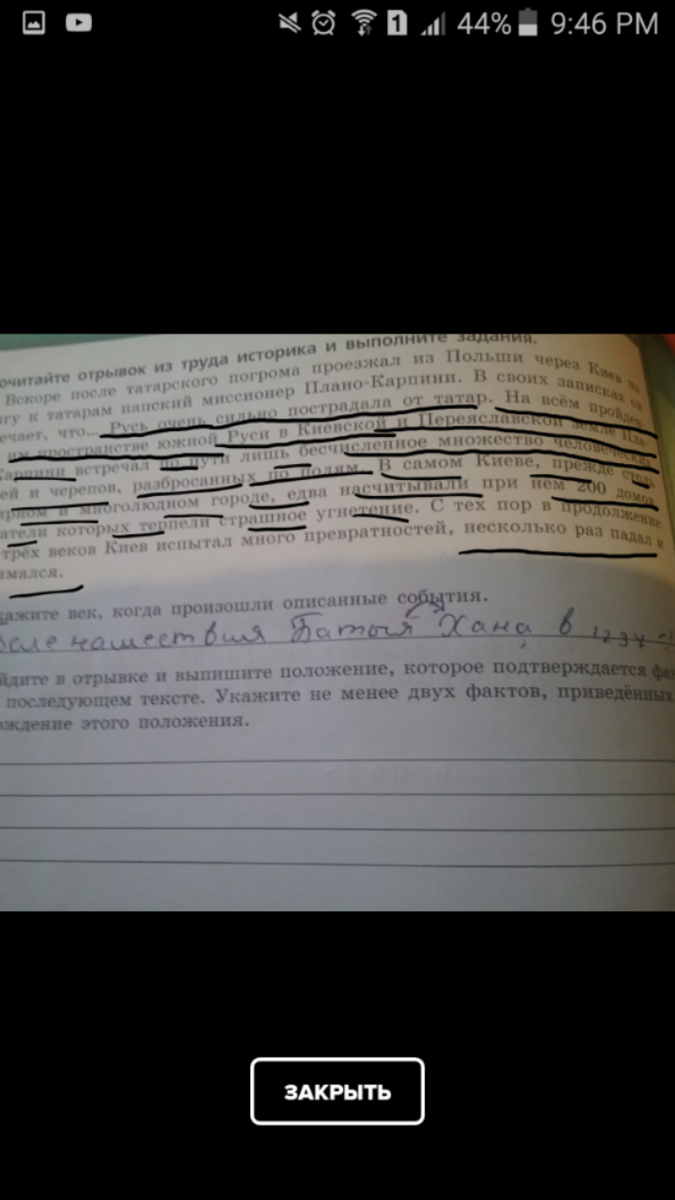 1 44% 9:46 PM
очитайте отрывок из труда историка и выполните задания.
Вскоре после татарского погрома проезжал из Польши через Киев на
гу к татарам папский миссионер Плано-Карпини. В своих записках он
ечает, что... Русь очень сильно пострадала от татар. На всём пройден-
им пространстве южной Руси в Киевской и Переяславской земле Пла-
Карпини встречал по пути лишь бесчисленное множество человеческих
ей и черепов, разбросанных по полям. В самом Киеве, прежде столь
ирном и многолюдном городе, едва насчитывали при нём 200 домов,
атели которых терпели страшное угнетение. С тех пор в продолжение
трёх веков Киев испытал много превратностей, несколько раз падал и
имался.
кажите век, когда произошли описанные события.
осле нашествия Батыя Хана в
йдите в отрывке и выпишите положение, которое подтверждается фак
последующем тексте. Укажите не менее двух фактов, приведённых
рждение этого положения.
ЗАКРЫТЬ